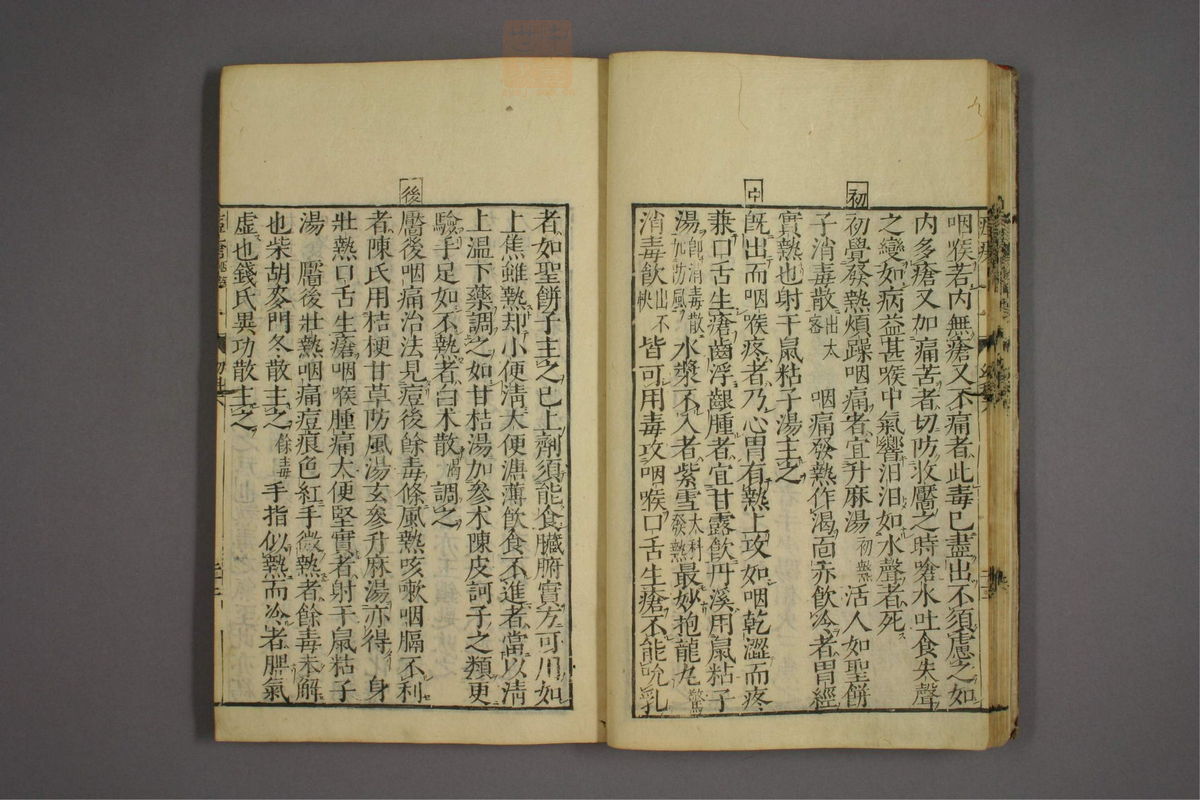 咽喉若內無瘡又不痛者此毒已盡出不須慮之如
內多瘡又加痛苦者切防收靨之時嗆水吐食失聲
之變如病益甚喉中氣響汩汩如水聲者死
初
初覺發熱煩躁咽痛者宜升麻湯初熱活人如聖餅
子消毒散出太密 咽痛發熱作渴面赤飲冷者胃經
實熱也射干鼠粘子湯主之
中
既出而咽喉疼者乃心胃有熱上攻如咽乾澀而疼
兼口舌生瘡齒浮齦腫者宜甘露飲丹溪用鼠粘子
湯即消毒散加防風水漿不入者紫雪太科發熱最妙抱龍丸驚
消毒飲出不快皆可用毒攻咽喉口舌生瘡不能吮乳
者如聖餅子主之已上劑須能食臟腑實方可用如
上焦雖熱却小便淸大便溏薄飲食不進者當以淸
上温下藥調之如甘桔湯加參术陳皮訶子之類更
驗手足如不熱者白术散渴調之
後
靨後咽痛治法見痘後餘毒條風熱咳嗽咽膈不利
者陳氏用桔梗甘草防風湯玄參升麻湯亦得 身
壯熱口舌生瘡咽喉腫痛大便堅實者射干鼠粘子
湯 靨後壯熱咽痛痘痕色紅手微熱者餘毒未解
也柴胡麥門冬散主之餘毒手指似熱而冷者脾氣
虛也錢氏異功散主之